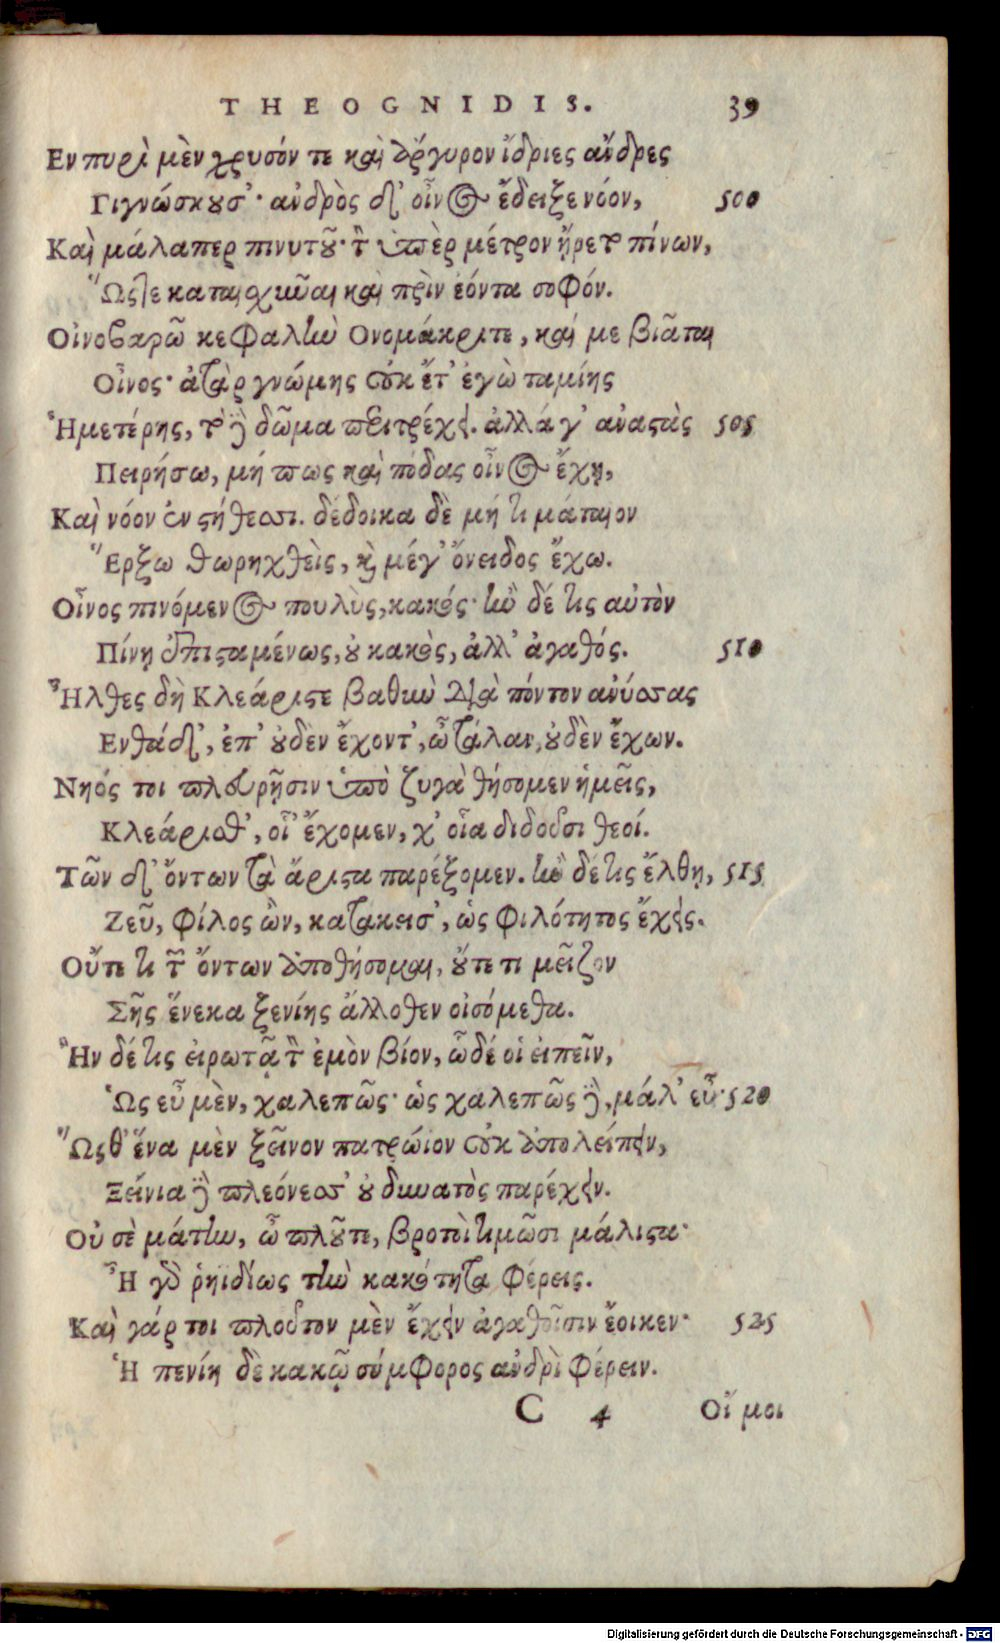 THEOGNIDIS. 39
Εν πυρὶ μὲν χρυσόν τε καὶ ἄργυρον ἴδριες ἄνδρες
Γιγνώσκουσ᾿· ἀνδρὸς δ᾿ οἶνος ἔδειξε νόον, 500
Καὶ μάλα περ πινυτοῦ· τὸν ὑπὲρ μέτρον ᾔρετο πίνων,
Ὥστε καταισχῦναι καὶ πρὶν ἐόντα σοφόν.
Οἰνοβαρῶ κεφαλὴν Ονομάκριτε, καί με βιᾶται
Οἶνος· ἀτὰρ γνώμης οὐκ ἔτ᾿ ἐγὼ ταμίης
Ἡμετέρης, τὸ δὲ δῶμα περιτρέχει. ἀλλά γ᾿ ἀναστὰς 505
Πειρήσω, μή πως καὶ πόδας οἶνος ἔχῃ,
Καὶ νόον ἐν στήθεσσι. δέδοικα δὲ μή τι μάταιον
Ἔρξω θωρηχθεὶς, καὶ μέγ᾿ ὄνειδος ἔχω.
Οἶνος πινόμενος πουλὺς, κακός· ἢν δέ τις αὐτὸν
Πίνῃ ἐπισταμένως, οὐ κακὸς, ἀλλ᾿ ἀγαθός. 510
Ἦλθες δὴ Κλεάριστε βαθὺν διὰ πόντον ἀνύσσας
Ενθάδ᾿, ἐπ᾿ οὐδὲν ἔχοντ᾿, ὦ τάλαν, οὐδὲν ἔχων.
Νηός τοι πλευρῇσιν ὑπὸ ζυγὰ θήσομεν ἡμεῖς,
Κλεάρισθ᾿, οἷ᾿ ἔχομεν, χ᾿ οἷα διδοῦσι θεοί.
Τῶν δ᾿ ὄντων τὰ ἄριστα παρέξομεν. ἢν δέ τις ἔλθῃ, 515
Ζεῦ, φίλος ὢν, κατάκεισ᾿, ὡς φιλότητος ἔχεις.
Οὔτε τι τῶν ὄντων ἀποθήσομαι, οὔτε τι μεῖζον
Σῆς ἕνεκα ξενίης ἄλλοθεν οἰσόμεθα.
Ἢν δέ τις εἰρωτᾷ τὸν ἐμὸν βίον, ὧδέ οἱ εἰπεῖν,
Ὡς εὖ μὲν, χαλεπῶς· ὡς χαλεπῶς δὲ, μάλ᾿ εὖ· 520
Ὥςθ᾿ ἕνα μὲν ξεῖνον πατρώιον οὐκ ἀπολείπειν,
Ξείνια δὲ πλεόνεσσ᾿ οὐ δυνατὸς παρέχειν.
Οὐ σὲ μάτην, ὦ πλοῦτε, βροτοὶ τιμῶσι μάλιστα·
Ἦ γὰρ ῥηϊδίως τὴν κακότητα φέρεις.
Καὶ γάρ τοι πλοῦτον μὲν ἔχειν ἀγαθοῖσιν ἔοικεν· 525
Ἡ πενίη δὲ κακῷ σύμφορος ἀνδρὶ φέρειν.
C 4 Οἴ μοι
Digitalisierung gefördert durch die Deutsche Forschungsgemeinschaft - DFG